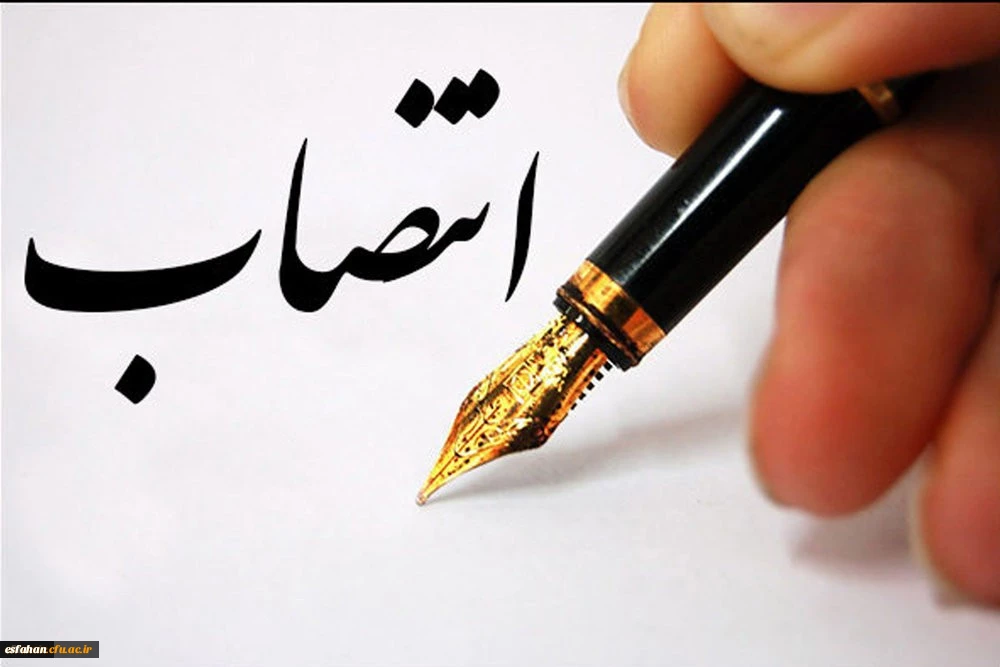 انتصاب
esfahan.cfu.ac.ir